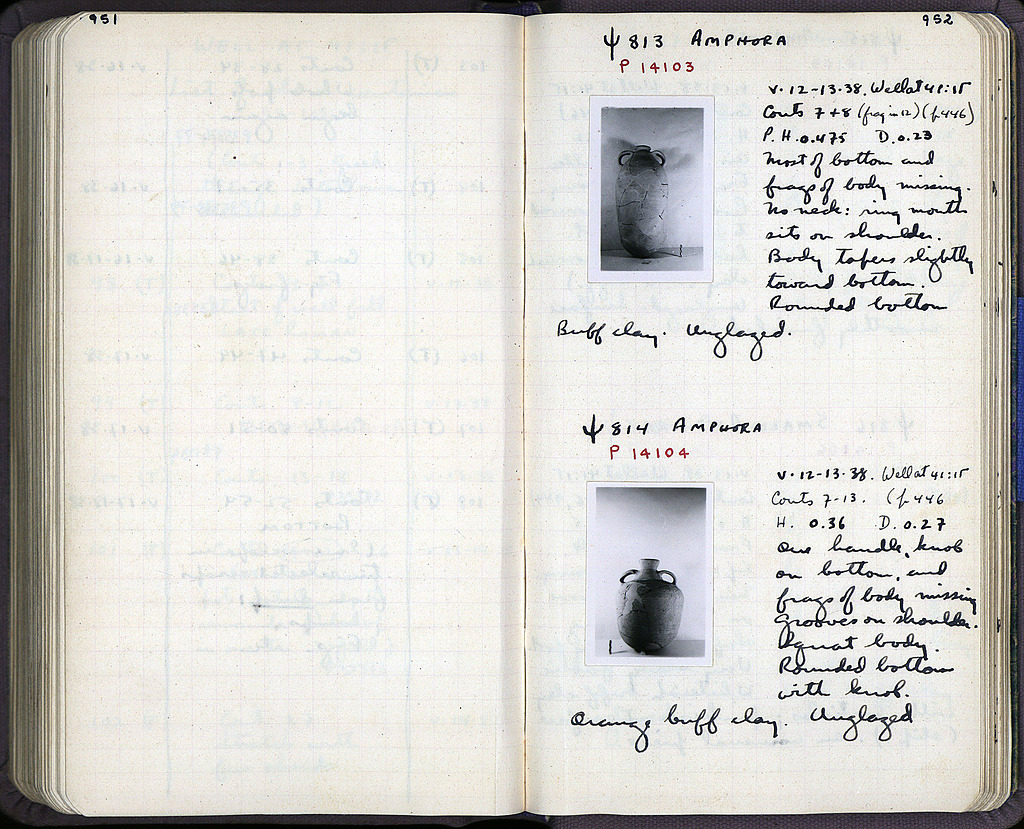 951
952
Ψ 813 AMPHORA
P 14103
V·12-13·38. Well at 41:15
Conts 7+8 (frag in 12) (p.446)
P.H. 0.475 D. 0.23
Most of bottom and
frags of body missing.
No neck: ring mouth
sits on shoulder.
Body tapers slightly
toward bottom.
Rounded bottom
Buff clay. Unglazed.
Ψ 814 AMPHORA
P 14104
V·12-13·38. Well at 41:15
Conts 7-13. (p.446
H. 0.36 D. 0.27
One handle, knob
on bottom, and
frags of body missing
Grooves on shoulder.
Squat body.
Rounded bottom
with knob.
Orange buff clay. Unglazed